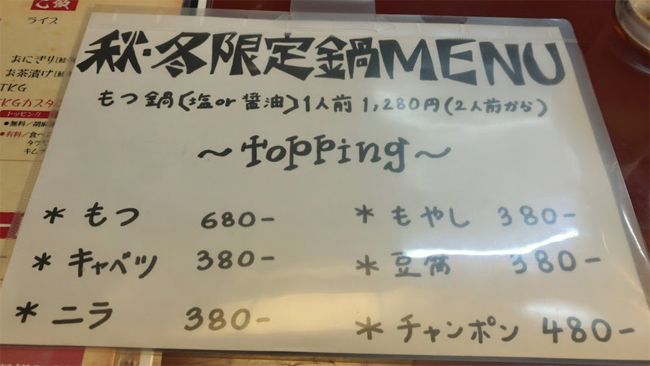 秋・冬限定鍋MENU
もつ鍋(塩or醤油)1人前 1,280円(2人前から)
～topping～
＊もつ 680-
＊キャベツ 380-
＊ニラ 380-
＊もやし 380-
＊豆腐 380-
＊チャンポン 480-
ご飯
ライス
おにぎり
お茶漬け
TKG
TKGカスタ
トッピング
●無料／胡麻
●有料／食べ